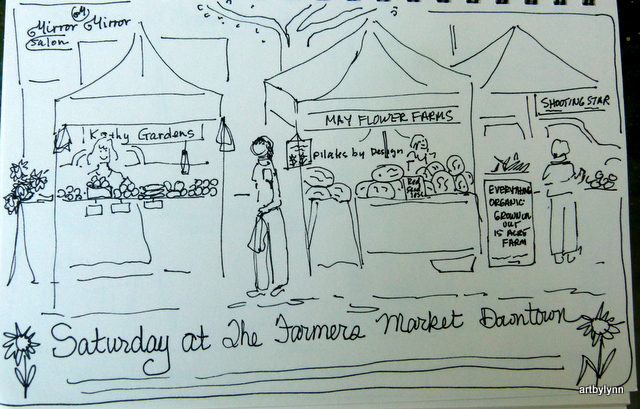 Mirror Mirror
Salon
Kathy Gardens
MAY FLOWER FARMS
SHOOTING STAR
Pilates by Design
EVERYTHING
ORGANIC
GROWN ON
OUT
15 ACRE
FARM
Saturday at The Farmers Market Downtown
artbylynn